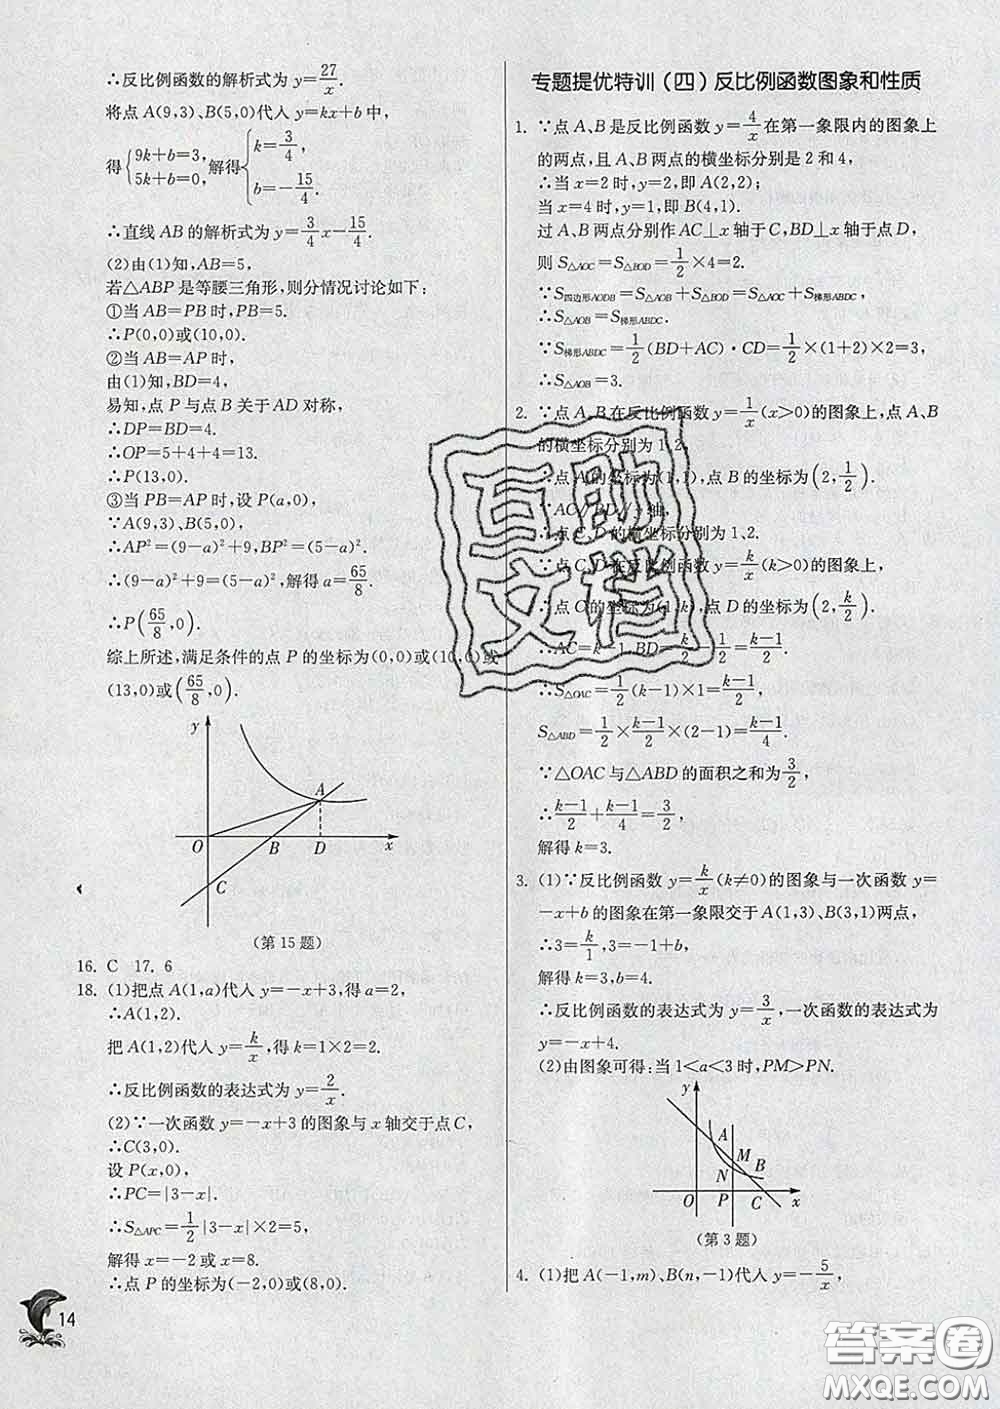 ∴反比例函数的解析式为 y=27/x.
将点 A(9,3)、B(5,0)代入 y=kx+b 中,
得{9k+b=3, 5k+b=0, 解得{k=3/4, b=-15/4.
∴直线 AB 的解析式为 y=3/4x-15/4.
(2)由(1)知,AB=5,
若△ABP 是等腰三角形,则分情况讨论如下:
①当 AB=PB 时,PB=5.
∴P(0,0)或(10,0).
②当 AB=AP 时,
由(1)知,BD=4,
易知,点 P 与点 B 关于 AD 对称,
∴DP=BD=4.
∴OP=5+4+4=13.
∴P(13,0).
③当 PB=AP 时,设 P(a,0),
∵A(9,3)、B(5,0),
∴AP²=(9-a)²+9,BP²=(5-a)².
∴(9-a)²+9=(5-a)²,解得 a=65/8.
∴P(65/8,0).
综上所述,满足条件的点 P 的坐标为(0,0)或(10,0)或
(13,0)或(65/8,0).
y
A
O B D x
C
(第 15 题)
16. C 17. 6
18. (1)把点 A(1,a)代入 y=-x+3,得 a=2,
∴A(1,2).
把 A(1,2)代入 y=k/x,得 k=1×2=2.
∴反比例函数的表达式为 y=2/x.
(2)∵一次函数 y=-x+3 的图象与 x 轴交于点 C,
∴C(3,0).
设 P(x,0),
∴PC=|3-x|.
∴S△APC=1/2|3-x|×2=5,
解得 x=-2 或 x=8.
∴点 P 的坐标为(-2,0)或(8,0).
14
专题提优特训(四)反比例函数图象和性质
1. ∵点 A、B 是反比例函数 y=4/x 在第一象限内的图象上
的两点,且 A、B 两点的横坐标分别是 2 和 4,
∴当 x=2 时,y=2,即 A(2,2);
当 x=4 时,y=1,即 B(4,1).
过 A、B 两点分别作 AC⊥x 轴于 C,BD⊥x 轴于点 D,
则 S△AOC=S△BOD=1/2×4=2.
∵S四边形AODB=S△AOB+S△BOD=S△AOC+S梯形ABDC,
∴S△AOB=S梯形ABDC.
∵S梯形ABDC=1/2(BD+AC)·CD=1/2×(1+2)×2=3,
∴S△AOB=3.
2. ∵点 A、B 在反比例函数 y=1/x(x>0)的图象上,点 A、B
的横坐标分别为 1、2,
∴点 A 的坐标为(1,1),点 B 的坐标为(2,1/2).
∵AC//BD//y 轴,
∴点 C、D 的横坐标分别为 1、2.
∵点 C、D 在反比例函数 y=k/x(k>0)的图象上,
∴点 C 的坐标为(1,k),点 D 的坐标为(2,k/2).
∴AC=k-1,BD=k/2-1/2=(k-1)/2.
∴S△OAC=1/2(k-1)×1=(k-1)/2,
S△ABD=1/2×(k-1)/2×(2-1)=(k-1)/4.
∵△OAC 与△ABD 的面积之和为3/2,
∴(k-1)/2+(k-1)/4=3/2,
解得 k=3.
3. (1)∵反比例函数 y=k/x(k≠0)的图象与一次函数 y=
-x+b 的图象在第一象限交于 A(1,3)、B(3,1)两点,
∴3=k/1,3=-1+b,
解得 k=3,b=4.
∴反比例函数的表达式为 y=3/x,一次函数的表达式为
y=-x+4.
(2)由图象可得:当 1<a<3 时,PM>PN.
y
A
M
N B
O P C x
(第 3 题)
4. (1)把 A(-1,m)、B(n,-1)代入 y=-5/x,
互助
文档
答案圈
MXQE.COM